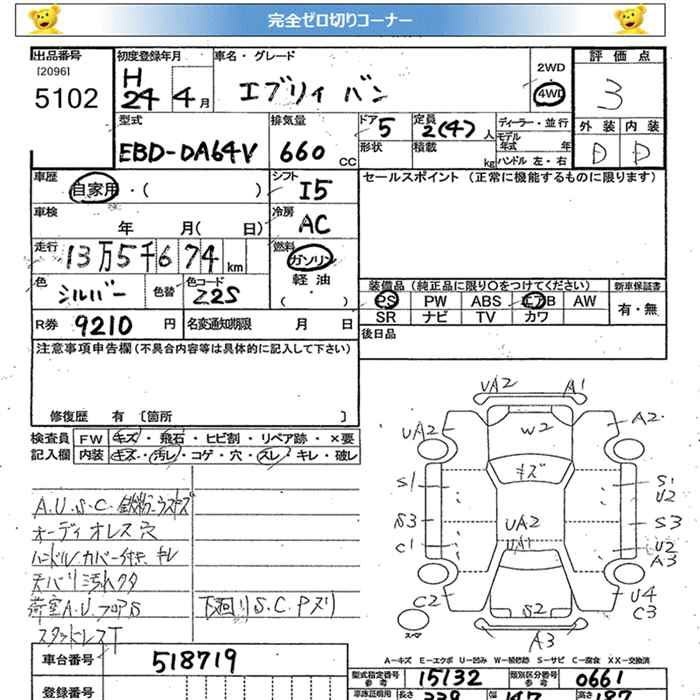 完全ゼロ切りコーナー
出品番号
[2096]
5102
初度登録年月
H
24 4月
車名・グレード
エブリィ バン
2WD
4WD
評価点
3
外装 内装
D D
型式
EBD-DA64V
排気量
660 cc
ドア 5
形状
定員 2(4)人
積載 kg
ディーラー・並行
モデル年式 年
ハンドル 左・右
車歴
自家用・( )
シフト
I5
車検
年 月( 日)
冷房
AC
走行
13万5千674km
燃料
ガソリン
軽油
・( )
色
シルバー
色替
色コード
Z2S
R券 9210 円
名変通知期限 月 日
セールスポイント (正常に機能するものに限ります)
装備品(純正品に限り○をつけてください)
PS PW ABS エアB AW
SR ナビ TV カワ
新車保証書
有・無
後日品
注意事項申告欄(不具合内容等は具体的に記入して下さい)
修復歴 有 〔箇所 〕
検査員記入欄
FW キズ・飛石・ヒビ割・リペア跡・×要
内装 キズ・汚レ・コゲ・穴・スレ・キレ・破レ
A.U.S.C.鉄粉
オーディオレス穴
ハンドルカバー付き キレ
天バリ汚レクタ
荷室A.U.フロアS
下廻りS.C.Pヌリ
スタッドレスT
UA2 A1
UA2 W2 A2
キズ
S1 S1
U2
S3 UA2 S3
C1 UA1 U2
A3
C2 S2 U4
C3
スペア
A3
A-キズ E-エクボ U-凹み W-補修跡 S-サビ C-腐食 XX-交換済
車台番号 518719
登録番号
型式指定番号 参考 15132
類別区分番号 参考 0661
車庫証明用 長さ 339 幅 147 高さ 187